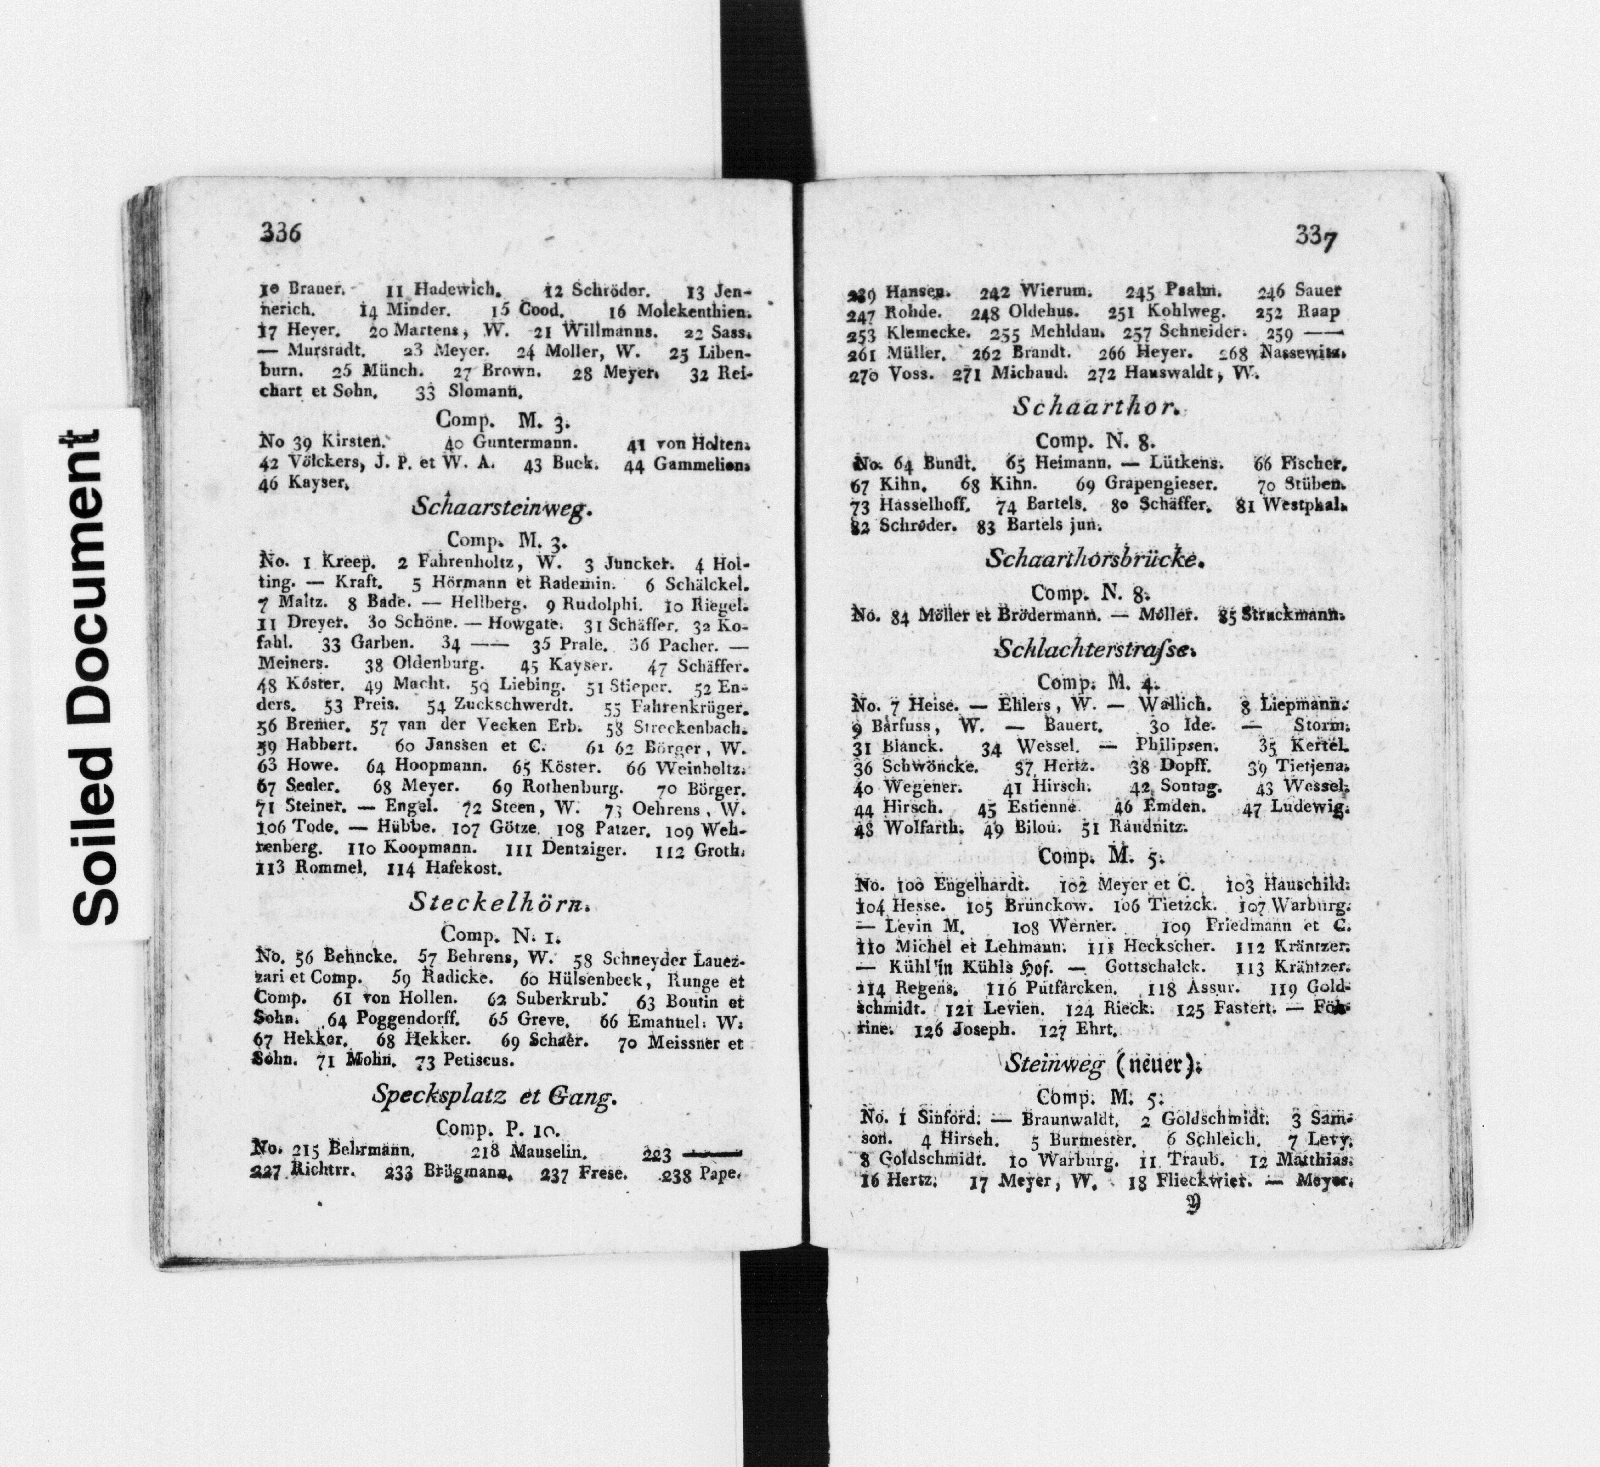 Soiled Document
336
10 Brauer. 11 Hadewich. 12 Schröder. 13 Jen-
nerich. 14 Minder. 15 Cood. 16 Molekenthien.
17 Heyer. 20 Martens, W. 21 Willmanns. 22 Sass.
— Murstadt. 23 Meyer. 24 Moller, W. 25 Liben-
burn. 26 Münch. 27 Brown. 28 Meyer. 32 Rei-
chart et Sohn. 33 Slomann.
Comp. M. 3.
No 39 Kirsten. 40 Guntermann. 41 von Holten.
42 Völckers, J. P. et W. A. 43 Buck. 44 Gammelien.
46 Kayser.
Schaarsteinweg.
Comp. M. 3.
No. 1 Kreep. 2 Fahrenholtz, W. 3 Juncker. 4 Hol-
ting. — Kraft. 5 Hörmann et Rademin. 6 Schälckel.
7 Maltz. 8 Bade. — Hellberg. 9 Rudolphi. 10 Riegel.
11 Dreyer. 30 Schöne. — Howgate. 31 Schäffer. 32 Ko-
fahl. 33 Garben. 34 —— 35 Prale. 36 Pacher. —
Meiners. 38 Oldenburg. 45 Kayser. 47 Schäffer.
48 Köster. 49 Macht. 50 Liebing. 51 Stieper. 52 En-
ders. 53 Preis. 54 Zuckschwerdt. 55 Fahrenkrüger.
56 Bremer. 57 van der Vecken Erb. 58 Streckenbach.
59 Habbert. 60 Janssen et C. 61 62 Börger, W.
63 Howe. 64 Hoopmann. 65 Köster. 66 Weinholtz.
67 Seeler. 68 Meyer. 69 Rothenburg. 70 Börger.
71 Steiner. — Engel. 72 Steen, W. 73 Oehrens, W.
106 Tode. — Hübbe. 107 Götze. 108 Patzer. 109 Weh-
renberg. 110 Koopmann. 111 Dentziger. 112 Groth.
113 Rommel. 114 Hafekost.
Steckelhörn.
Comp. N. 1.
No. 56 Behncke. 57 Behrens, W. 58 Schneyder Lauez-
zari et Comp. 59 Radicke. 60 Hülsenbeck, Runge et
Comp. 61 von Hollen. 62 Suberkrub. 63 Boutin et
Sohn. 64 Poggendorff. 65 Greve. 66 Emanuel. W.
67 Hekker. 68 Hekker. 69 Schaer. 70 Meissner et
Sohn. 71 Mohn. 73 Petiscus.
Specksplatz et Gang.
Comp. P. 10.
No. 215 Behrmann. 218 Mauselin. 223 ——
227 Richtrr. 233 Brügmann. 237 Frese. 238 Pape.
337
239 Hansen. 242 Wierum. 245 Psalm. 246 Sauer
247 Rohde. 248 Oldehus. 251 Kohlweg. 252 Raap
253 Klemecke. 255 Mehldau. 257 Schneider. 259 ——
261 Müller. 262 Brandt. 266 Heyer. 268 Nassewitz.
270 Voss. 271 Michaud. 272 Hauswaldt, W.
Schaarthor.
Comp. N. 8.
No. 64 Bundt. 65 Heimann. — Lütkens. 66 Fischer.
67 Kihn. 68 Kihn. 69 Grapengieser. 70 Stüben.
73 Hasselhoff. 74 Bartels. 80 Schäffer. 81 Westphal.
82 Schröder. 83 Bartels jun.
Schaarthorsbrücke.
Comp. N. 8.
No. 84 Möller et Brödermann. — Möller. 85 Struckmann.
Schlachterstraſse.
Comp. M. 4.
No. 7 Heise. — Ehlers, W. — Wallich. 8 Liepmann.
9 Barfuss, W. — Bauert. 30 Ide. — Storm.
31 Blanck. 34 Wessel. — Philipsen. 35 Kertel.
36 Schwöncke. 37 Hertz. 38 Dopff. 39 Tietjens.
40 Wegener. 41 Hirsch. 42 Sontag. 43 Wessel.
44 Hirsch. 45 Estienne. 46 Emden. 47 Ludewig.
48 Wolfarth. 49 Bilou. 51 Raudnitz.
Comp. M. 5.
No. 100 Engelhardt. 102 Meyer et C. 103 Hauschild.
104 Hesse. 105 Brünckow. 106 Tietzck. 107 Warburg.
— Levin M. 108 Werner. 109 Friedmann et C.
110 Michel et Lehmann. 111 Heckscher. 112 Kräntzer.
— Kühl in Kühls Hof. — Gottschalck. 113 Kräntzer.
114 Regens. 116 Putfarcken. 118 Assur. 119 Gold-
schmidt. 121 Levien. 124 Rieck. 125 Fastert. —
rine. 126 Joseph. 127 Ehrt.
Steinweg (neuer).
Comp. M. 5.
No. 1 Sinford. — Braunwaldt. 2 Goldschmidt. 3 Sam-
son. 4 Hirsch. 5 Burmester. 6 Schleich. 7 Levy.
8 Goldschmidt. 10 Warburg. 11 Traub. 12 Matthias.
16 Hertz. 17 Meyer, W. 18 Flieckwier. — Meyer.
Y